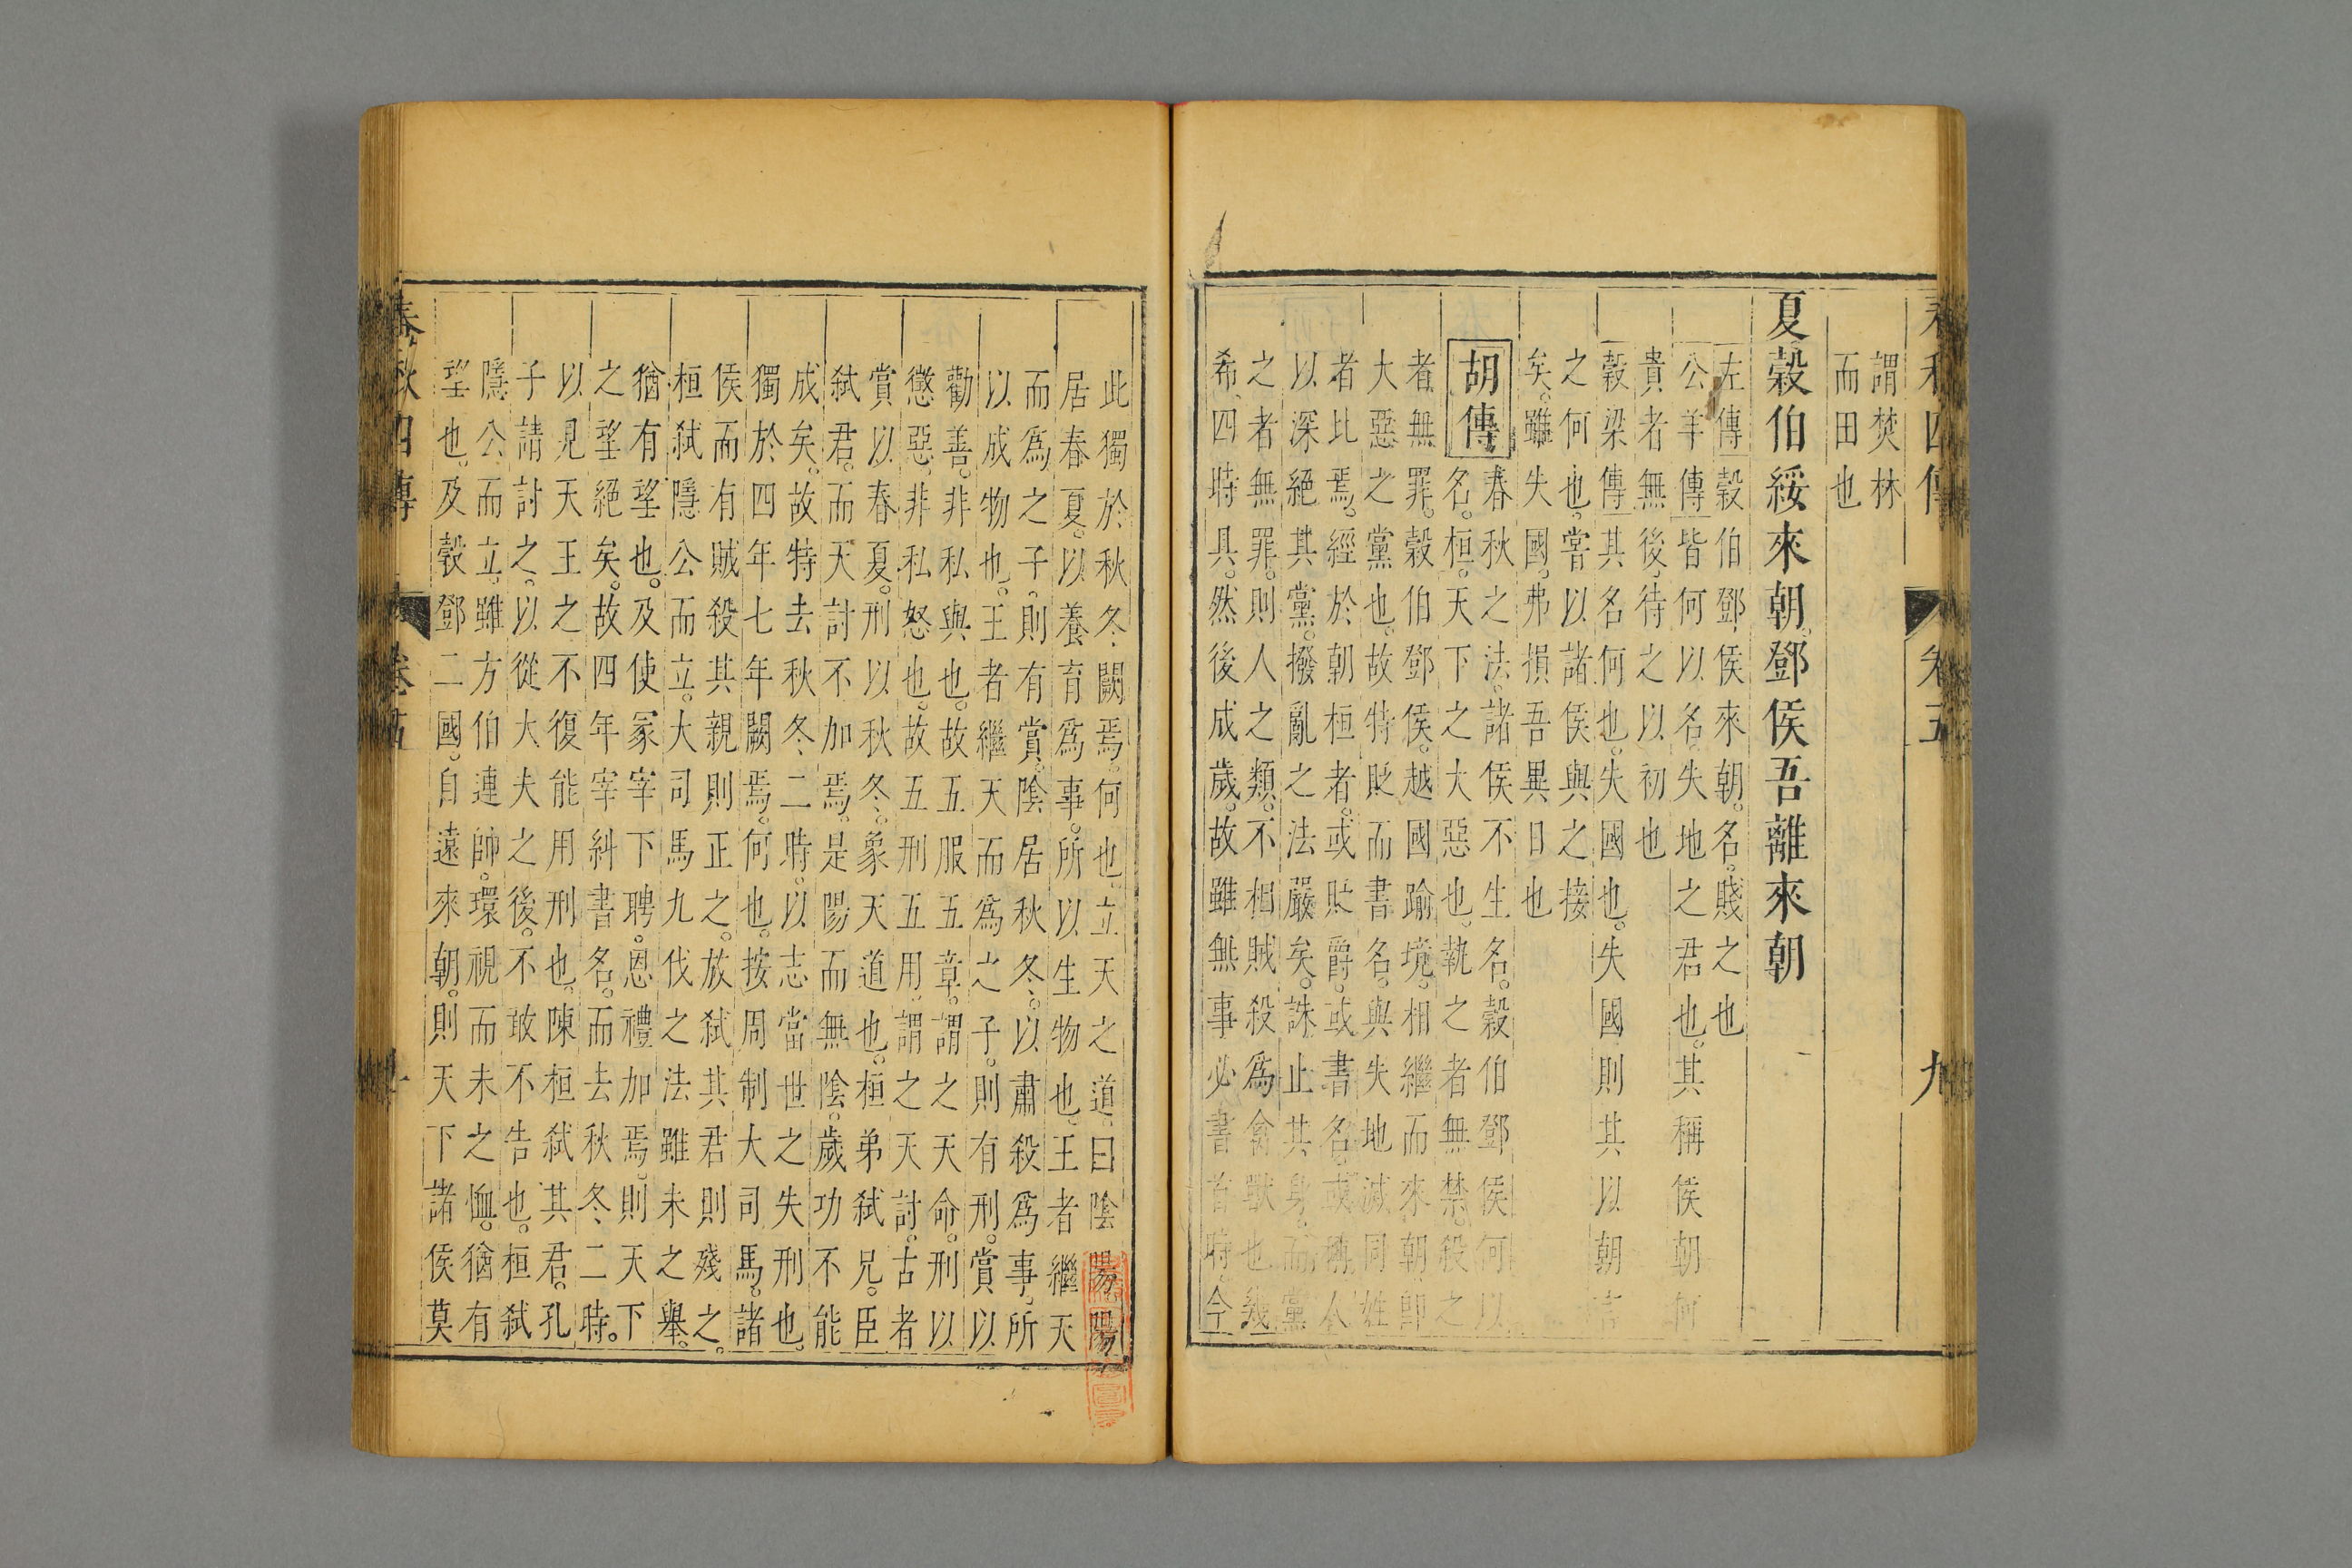 春秋四傳 卷五 九
謂焚林
而田也
夏穀伯綏來朝鄧侯吾離來朝
左傳穀伯鄧侯來朝名賤之也
公羊傳皆何以名失地之君也其稱侯朝何
貴者無後待之以初也
穀梁傳其名何也失國也失國則其以朝言
之何也嘗以諸侯與之接
矣雖失國弗損吾異日也
胡傳
春秋之法諸侯不生名穀伯鄧侯何以
名桓天下之大惡也執之者無禁殺之
者無罪穀伯鄧侯越國踰境相繼而來朝即
大惡之黨也故特貶而書名與失地滅同姓
者比焉經於朝桓者或貶爵或書名或稱人
以深絕其黨撥亂之法嚴矣誅止其身而黨
之者無罪則人之類不相賊殺為禽獸也幾
希四時具然後成歲故雖無事必書首時今
此獨於秋冬闕焉何也立天之道曰陰陽陽
居春夏以養育爲事所以生物也王者繼天
而爲之子則有賞陰居秋冬以肅殺爲事所
以成物也王者繼天而爲之子則有刑賞以
勸善非私與也故五服五章謂之天命刑以
懲惡非私怒也故五刑五用謂之天討古者
賞以春夏刑以秋冬象天道也桓弟弑兄臣
弑君而天討不加焉是陽而無陰歲功不能
成矣故特去秋冬二時以志當世之失刑也
獨於四年七年闕焉何也按周制大司馬諸
侯而有賊殺其親則正之放弑其君則殘之
桓弑隱公而立大司馬九伐之法雖未之舉
猶有望也及使冢宰下聘恩禮加焉則天下
之望絕矣故四年宰糾書名而去秋冬二時
以見天王之不復能用刑也陳桓弑其君孔
子請討之以從大夫之後不敢不告也桓弑
隱公而立雖方伯連帥環視而未之恤猶有
望也及穀鄧二國自遠來朝則天下諸侯莫
春秋四傳 卷五